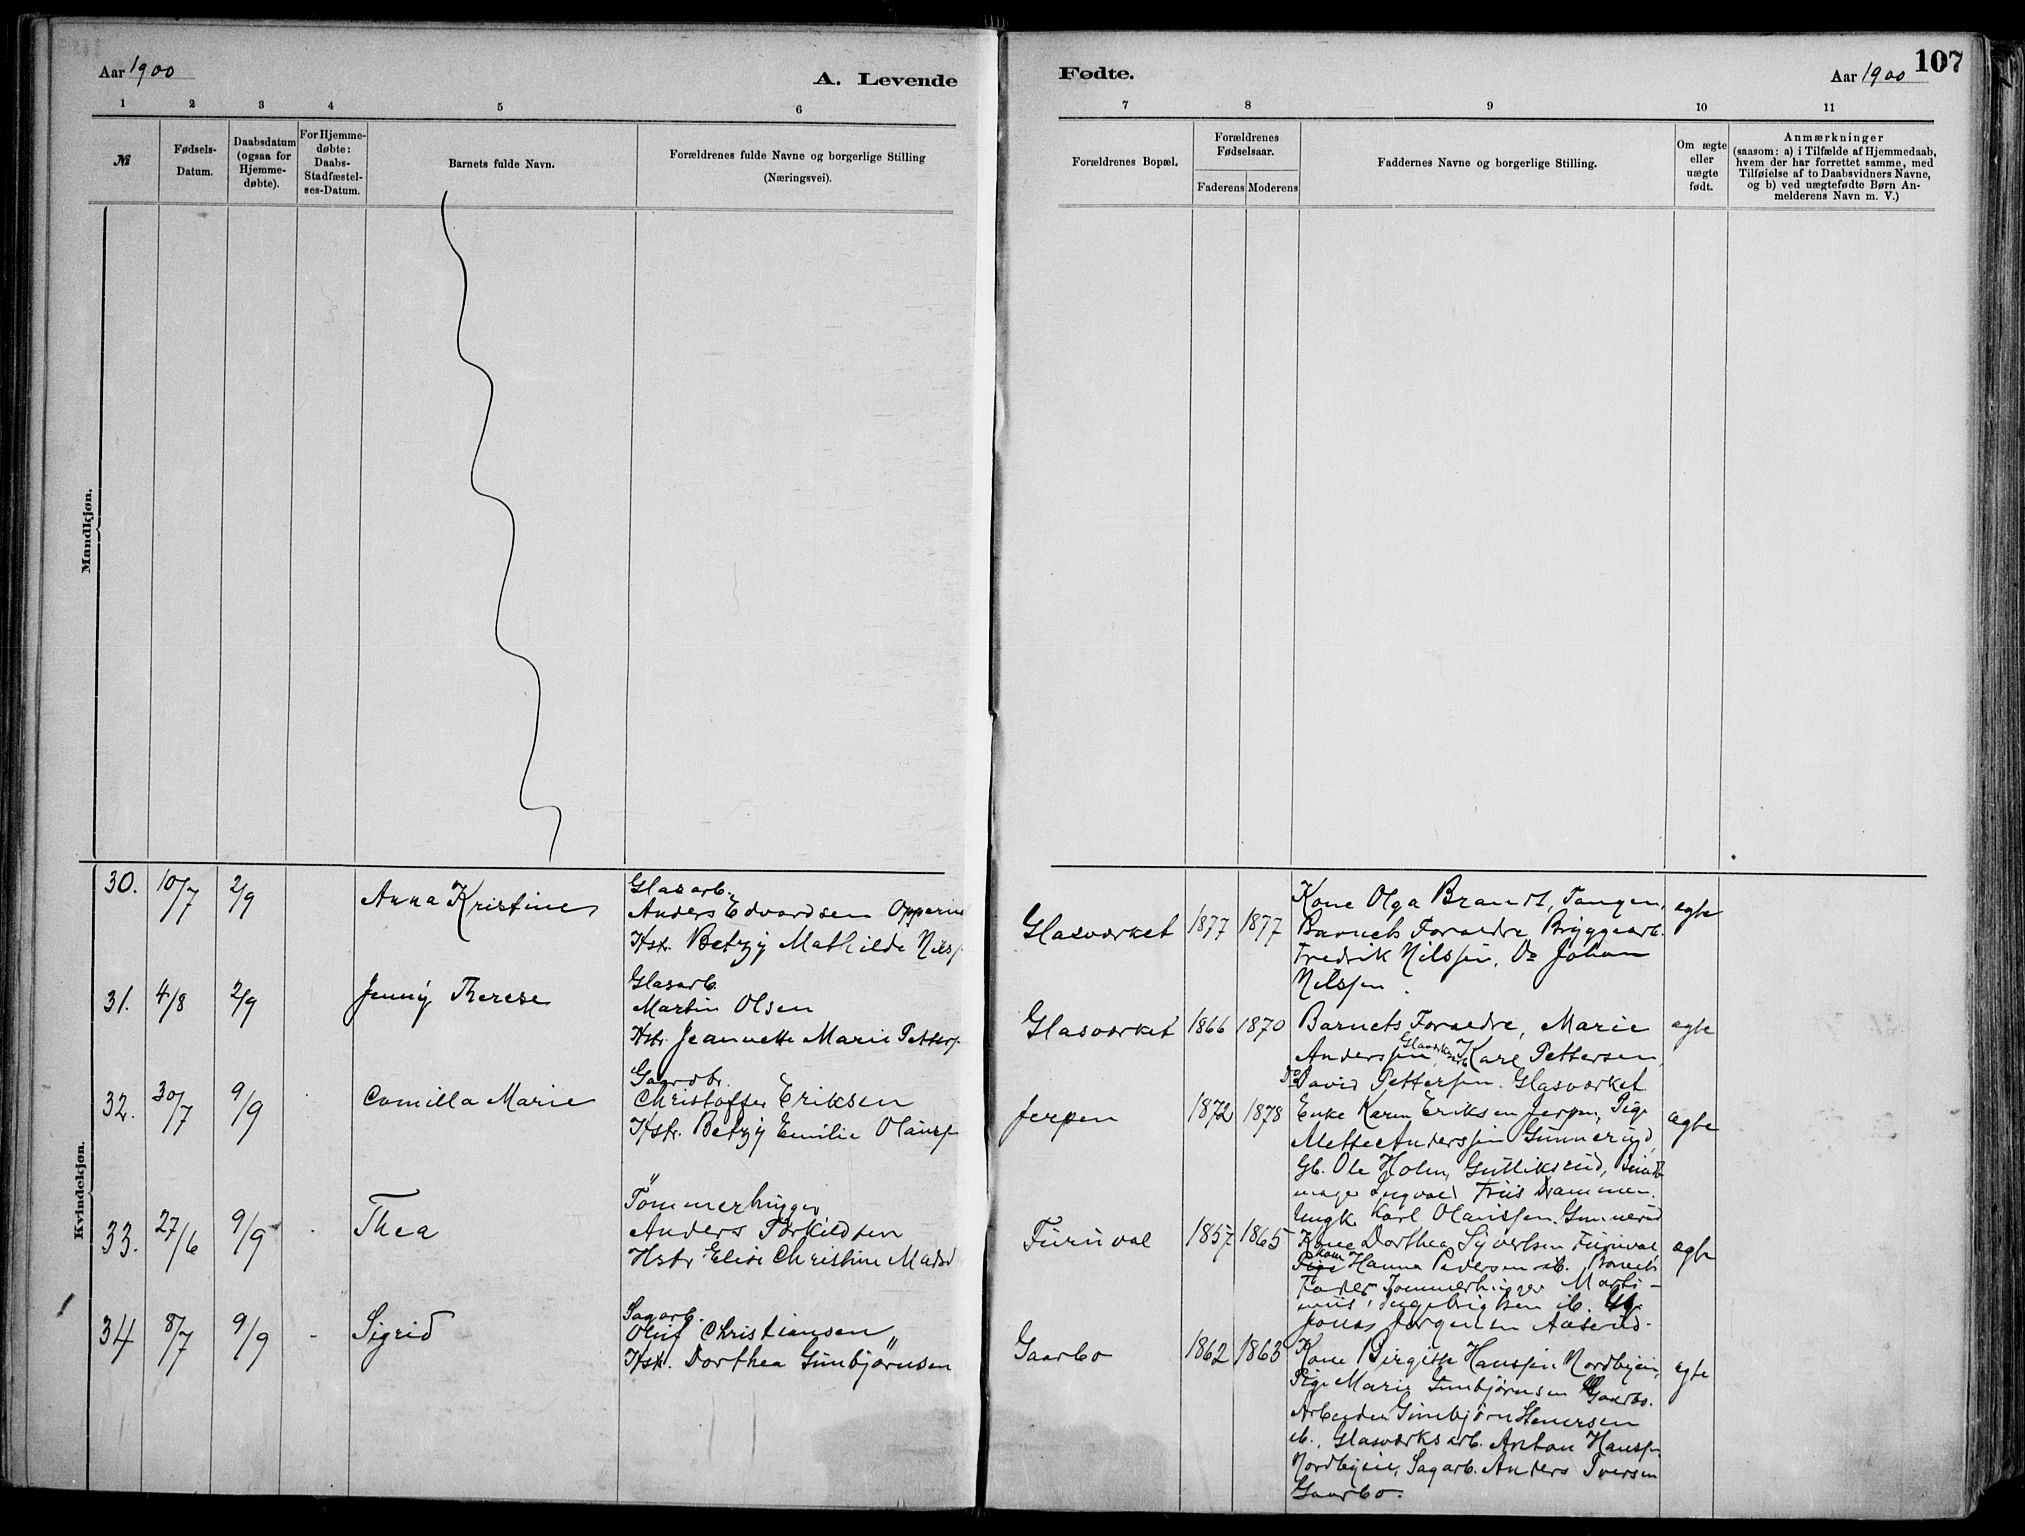 Aar 1900
A. Levende
Fødte.
Aar 1900
107
1 2 3 4 5 6
7 8 9 10 11
№
Fødsels-
Datum.
Daabsdatum
(ogsaa for
Hjemme-
døbte).
For Hjemme-
døbte:
Daabs-
Stadfæstel-
ses-Datum.
Barnets fulde Navn.
Forældrenes fulde Navne og borgerlige Stilling
(Næringsvei).
Forældrenes Bopæl.
Forældrenes
Fødselsaar.
Faderens Moderens
Faddernes Navne og borgerlige Stilling.
Om ægte
eller
uægte
født.
Anmærkninger
(saasom: a) i Tilfælde af Hjemmedaab,
hvem der har forrettet samme, med
Tilføielse af to Daabsvidners Navne,
og b) ved uægtefødte Børn An-
melderens Navn m. V.)
Mandkjøn.
Kvindekjøn.
30. 10/7 2/9 Anna Kristine
Glasarb.
Anders Edvardsen
Hstr. Betzy Mathilde Nilss
Glasværket 1877 1877
Kone Olga Brandt, Tangen,
Barnets Forældre, Bryggearb.
Fredrik Nilssen, Do Johan
Nilssen.
ægte
31. 4/8 2/9 Jenny Therese
Glasarb.
Martin Olsen
Hstr. Jeannette Marie Petters
Glasværket 1866 1870
Barnets Forældre, Marie
Anderssen, Karl Pettersen,
Do David Pettersen. Glasværket
ægte
32. 30/7 9/9 Camilla Marie
Gaardbr.
Christoffer Eriksen
Hstr. Betzy Emilie Olauss
Jerpen 1872 1878
Enke Karen Eriksen Jerpen, Pige
Mette Anderssen Gunnerud,
Gb. Ole Holm, Gulliksrud,
Ingvald Friis Drammen.
Ungk. Karl Olaussen Gunnerud
ægte
33. 27/6 9/9 Thea
Tömmerhugger
Anders Torkildsen
Hstr. Elise Christine Madsd
Furuval 1857 1865
Kone Dorthea Syvertsen Furuval,
Hanna Pedersen ib. Barnets
Fader, Tommerhugger Marti-
nius Ingebrigtsen ib. Gb.
Jonas Jørgensen Aaserud.
ægte
34 8/7 9/9 Sigrid
Sagarb.
Oluf Christiansen
Hstr. Dorthea Gunbjørnsen
Gaarbo 1862 1863
Kone Birgitte Hanssen Nordbyeie,
Pige Marie Gunbjørnsen Gaarbo.
Arbeider Gunbjørn Stenersen
ib., Glasværksarb. Anton Hanss
Nordbyeie, Sagarb. Anders Iversen
Gaarbo.
ægte